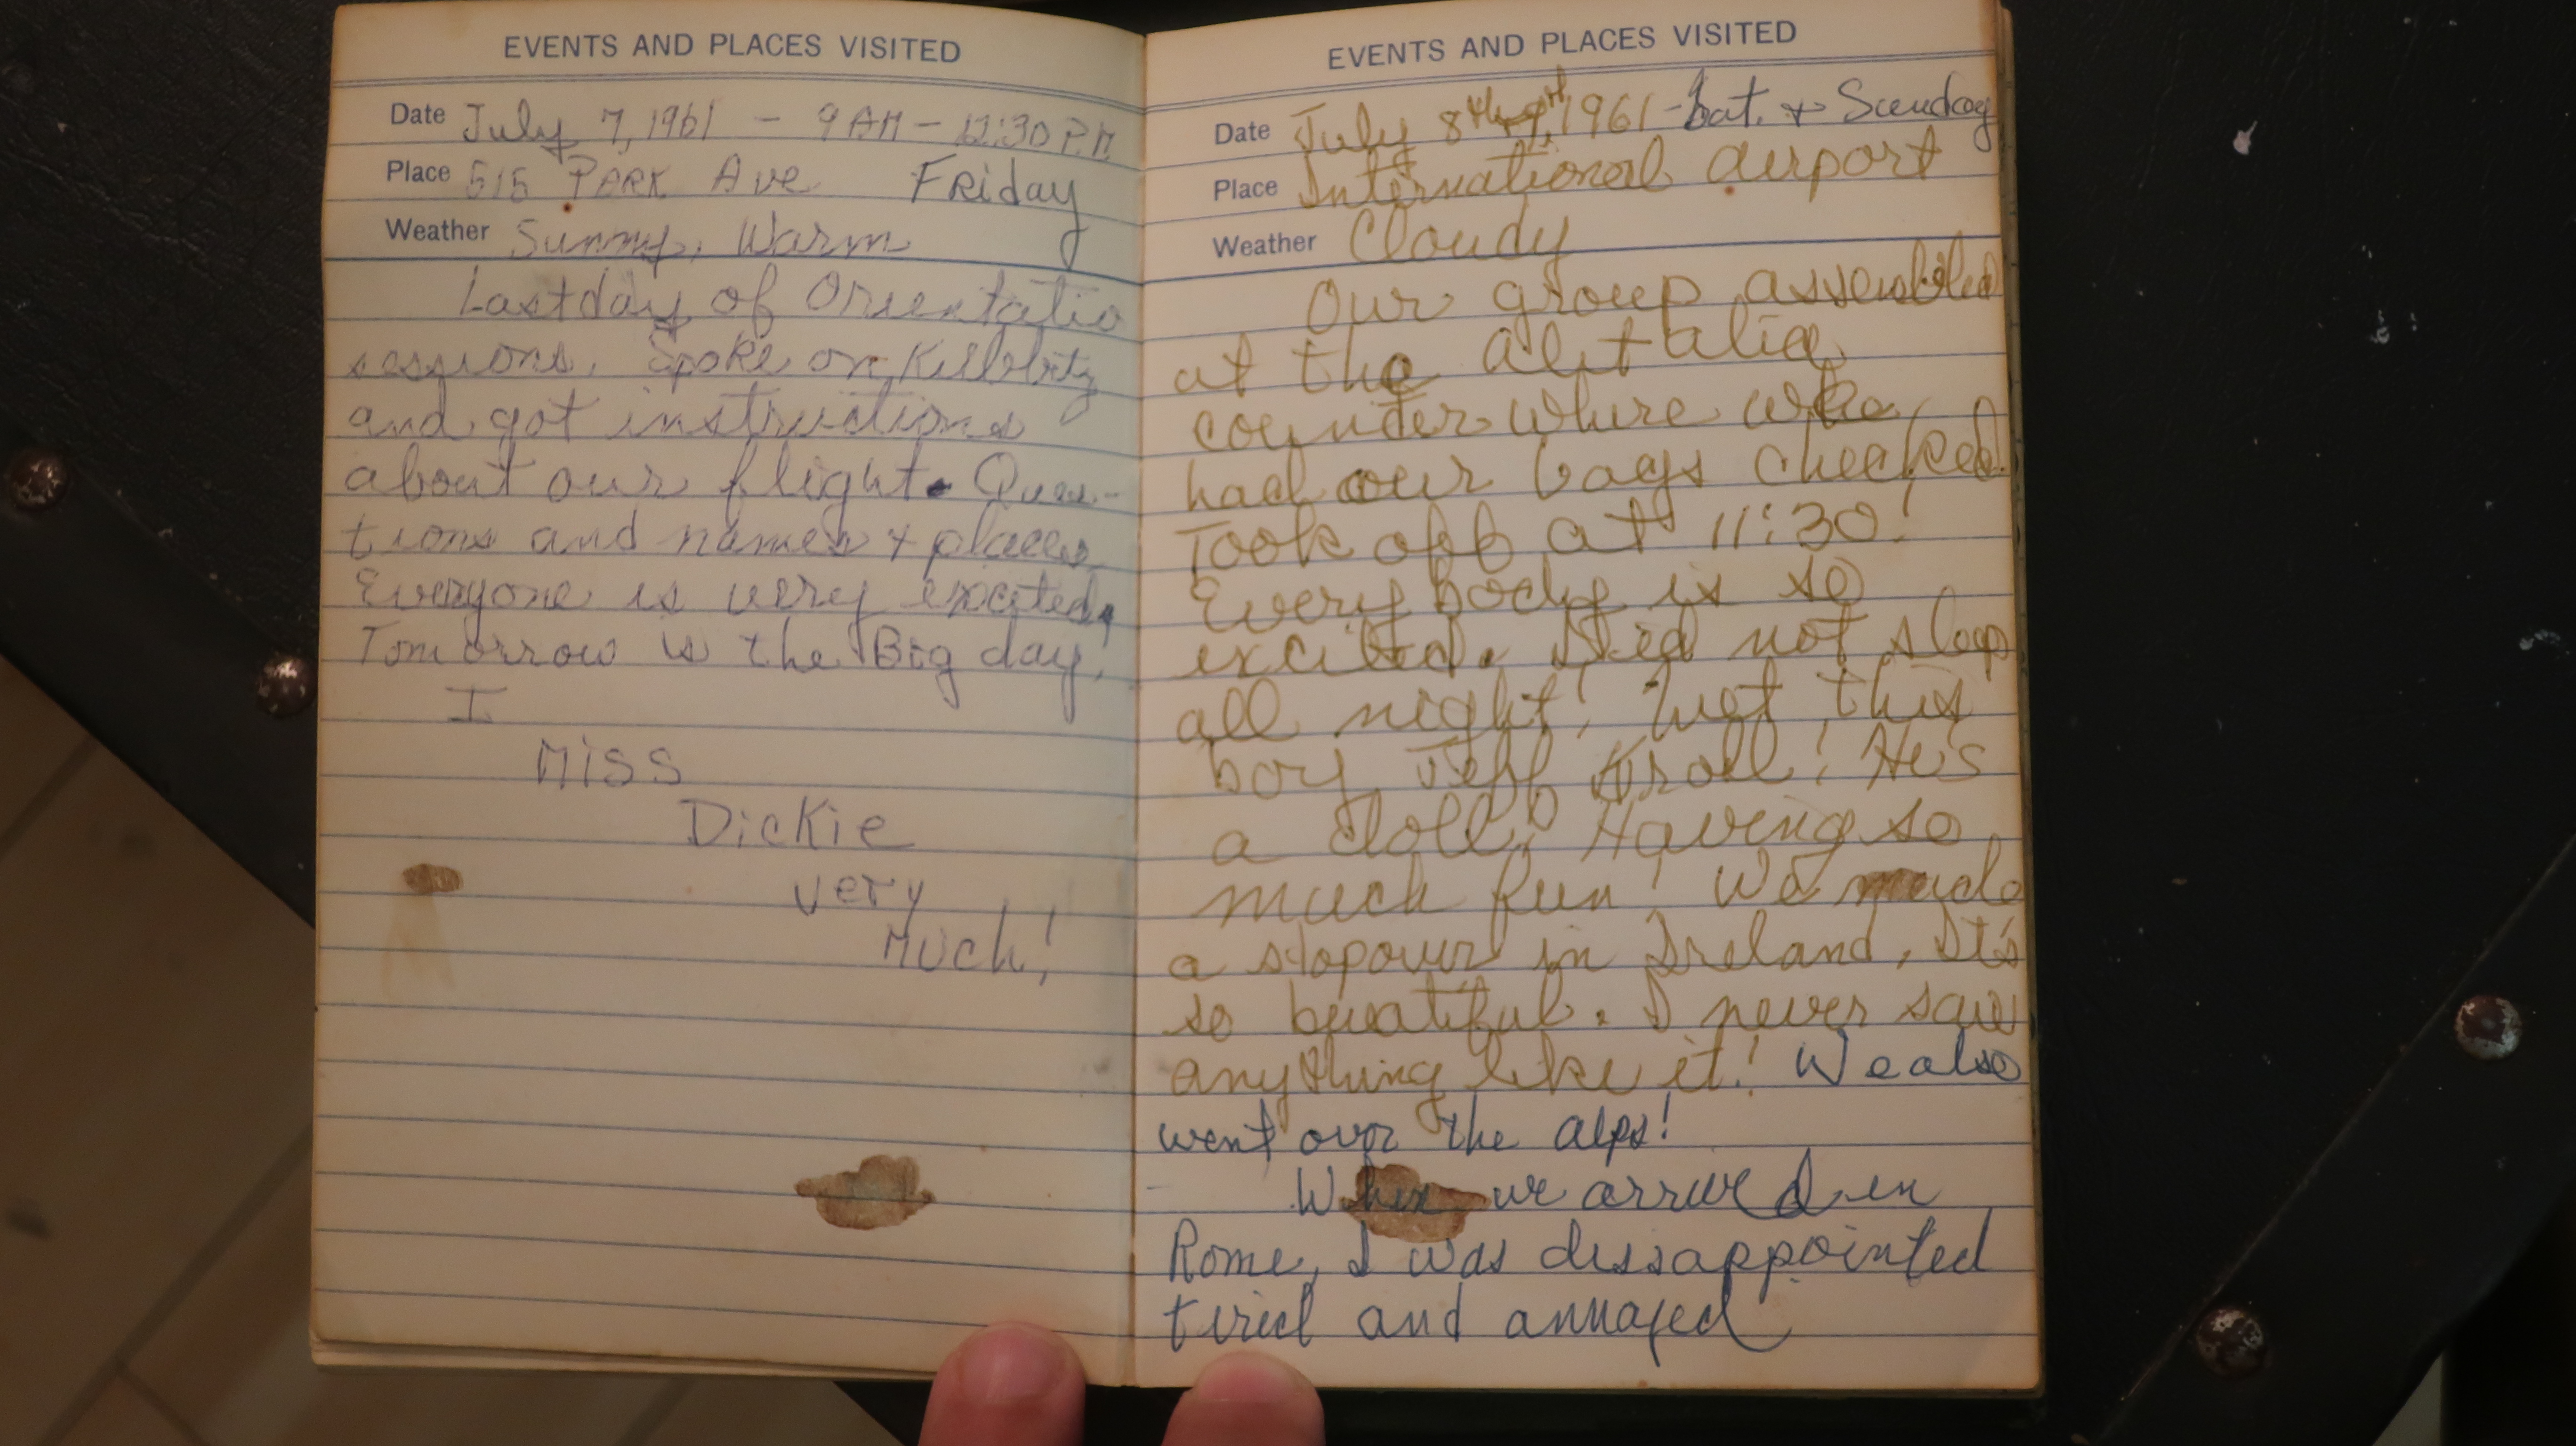 EVENTS AND PLACES VISITED
Date July 7, 1961 - 9 AM - 12:30 P.M
Place 515 PARK Ave Friday
Weather Sunny, Warm
Last day of Orientatio
sessions. Spoke on Kibbutz
and got instructions
about our flight. Ques-
tions and names + places
Everyone is very excited,
Tomorrow is the Big day!
I
Miss
Dickie
very
Much!
EVENTS AND PLACES VISITED
Date July 8th, 9th 1961 - Sat. + Sunday
Place International airport
Weather Cloudy
Our group assembled
at the alitalia
counter where we
had our bags checked.
Took off at 11:30!
Everybody is so
excited. Did not sleep
all night! Met this
boy Jeff Kroll! He's
a doll! Having so
much fun! We made
a stopover in Ireland, It's
so beuatiful. I never saw
anything like it! We also
went over the alps!
When we arrived in
Rome, I was dissappointed
tired and annoyed